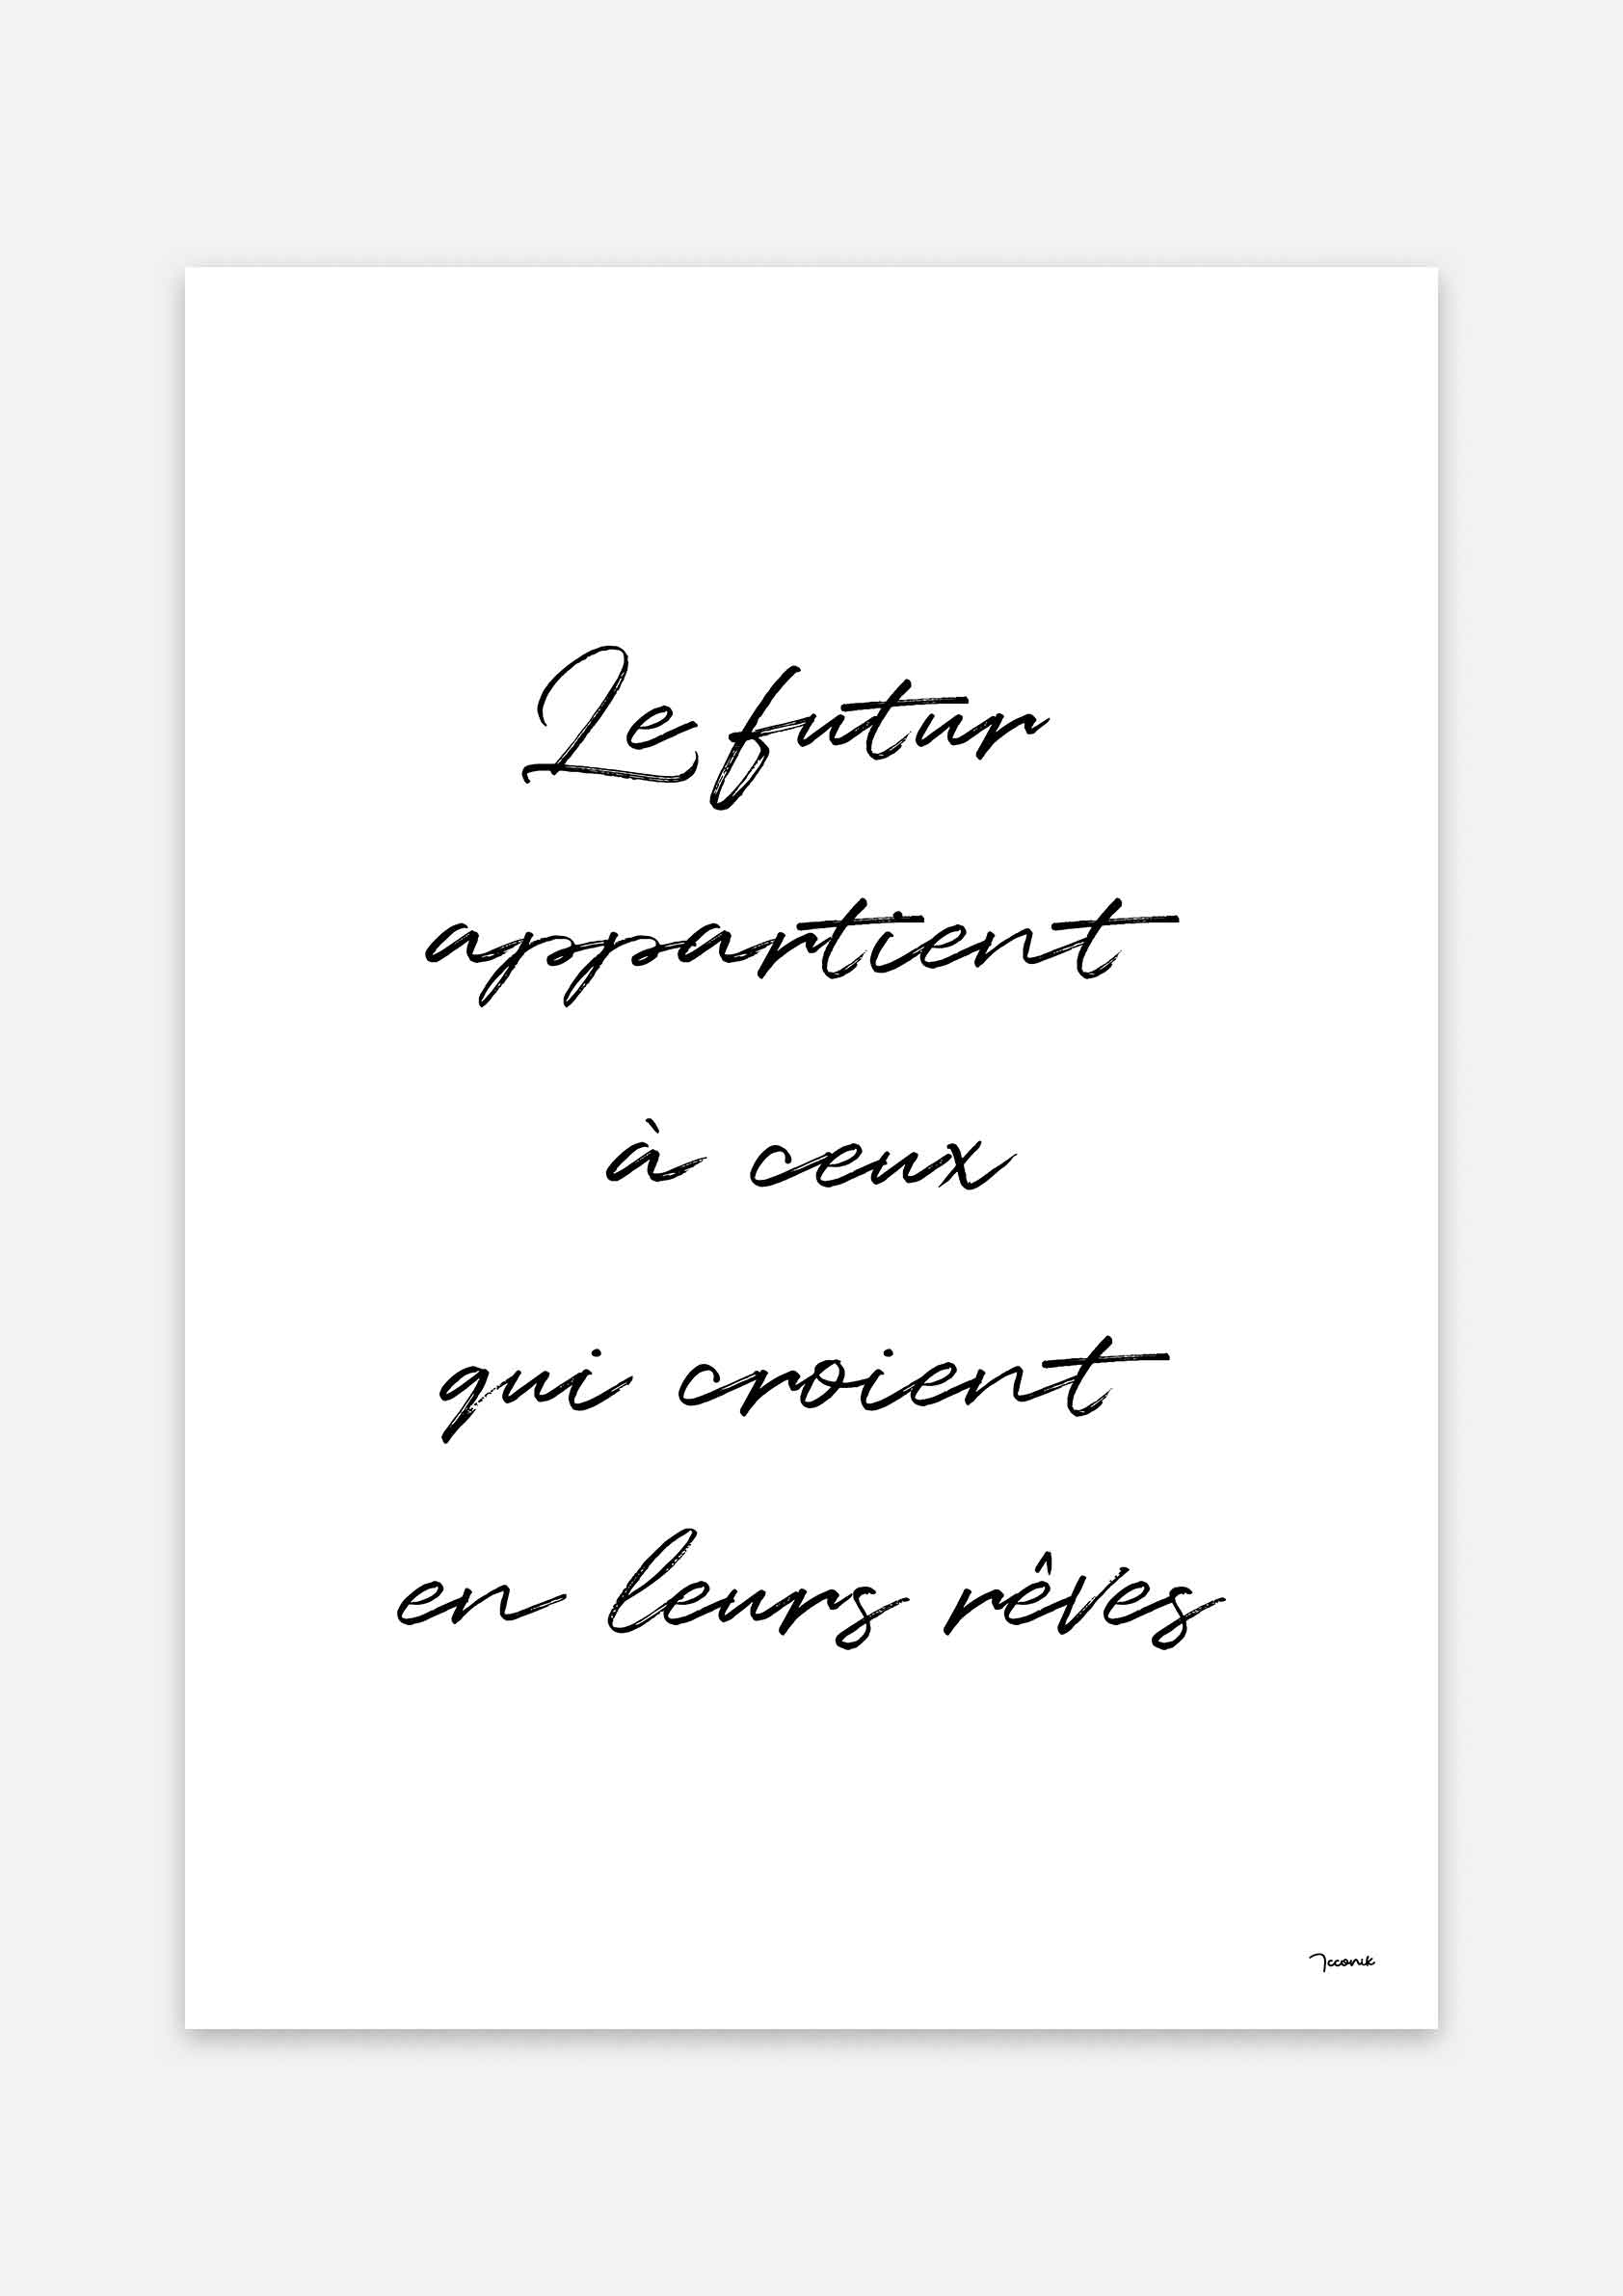 Le futur
appartient
à ceux
qui croient
en leurs rêves
Icconik